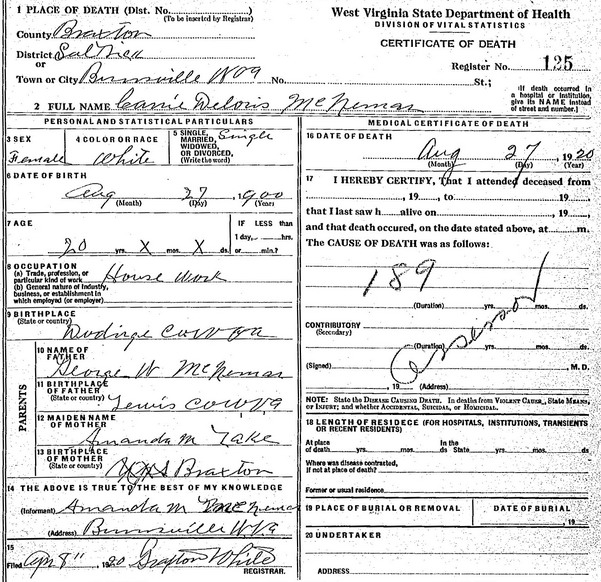 1 PLACE OF DEATH (Dist. No.
(To be inserted by Registrar)
County Braxton
District Salt Lick
or
Town or City Burnsville W Va No. St.;
2 FULL NAME Carrie Deloris McNemar
West Virginia State Department of Health
DIVISION OF VITAL STATISTICS
CERTIFICATE OF DEATH
Register No. 125
(If death occurred in
a hospital or institution,
give its NAME instead
of street and number.)
PERSONAL AND STATISTICAL PARTICULARS
3 SEX
Female
4 COLOR OR RACE
White
5 SINGLE,
MARRIED,
WIDOWED,
OR DIVORCED,
(Write the word)
Single
6 DATE OF BIRTH
Aug 27, 1900
(Month) (Day) (Year)
7 AGE
20 yrs. X mos. X ds.
IF LESS than
1 day, hrs.
or min.?
8 OCCUPATION
(a) Trade, profession, or
particular kind of work House Work
(b) General nature of industry,
business, or establishment in
which employed (or employer)
9 BIRTHPLACE
(State or country)
Co W Va
PARENTS
10 NAME OF
FATHER
George W McNemar
11 BIRTHPLACE
OF FATHER
(State or country)
Lewis Co W Va
12 MAIDEN NAME
OF MOTHER
Amanda M
13 BIRTHPLACE
OF MOTHER
(State or country)
Braxton
14 THE ABOVE IS TRUE TO THE BEST OF MY KNOWLEDGE
(Informant) Amanda M McNemar
(Address) Burnsville W Va
15
Filed 8", 1920 Grafton White
REGISTRAR.
MEDICAL CERTIFICATE OF DEATH
16 DATE OF DEATH
Aug 27, 1920
(Month) (Day) (Year)
17 I HEREBY CERTIFY, That I attended deceased from
, 19 , to , 19 ,
that I last saw h alive on , 19 ,
and that death occured, on the date stated above, at m.
The CAUSE OF DEATH was as follows:
189
(Duration) yrs. mos. ds.
CONTRIBUTORY
(Secondary)
(Duration) yrs. mos. ds.
(Signed) , M. D.
, 19 (Address)
NOTE: State the DISEASE CAUSING DEATH. In deaths from VIOLENT CAUSE, State MEANS
OF INJURY; and whether ACCIDENTAL, SUICIDAL, OR HOMICIDAL.
18 LENGTH OF RESIDECE (FOR HOSPITALS, INSTITUTIONS, TRANSIENTS
OR RECENT RESIDENTS)
At place
of death yrs. mos. ds.
In the
State yrs. mos. ds.
Where was disease contracted,
if not at place of death?
Former or usual residence
19 PLACE OF BURIAL OR REMOVAL
DATE OF BURIAL
, 19
20 UNDERTAKER
ADDRESS